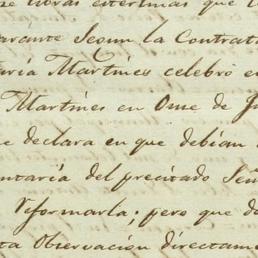 libras esterlinas que
arante Segun la Contrat
aria Martines celebró e
Martines en Onse de Ju
e declara en que debian
ntaria del precitado Señ
Reformarla; pero que d
ta Observacion directame